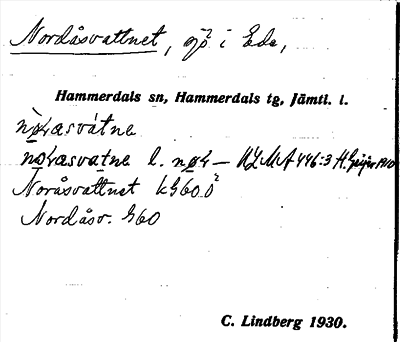 Nordåsvattnet, sjö i Ede,
Hammerdals sn, Hammerdals tg, Jämtl. l.
nòrasvátne
norasvatne l. nor— ULMA 446:3 H. Geijer 1910
Noråsvattnet kG60.ö²
Nordåsv. G60
C. Lindberg 1930.